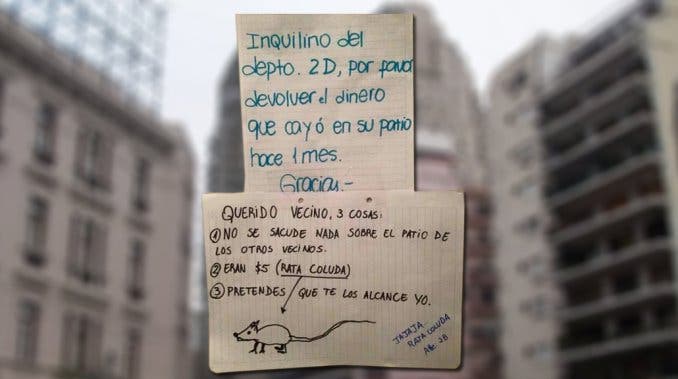 Inquilino del
depto. 2D, por favor
devolver el dinero
que cayó en su patio
hace 1 mes.
Gracias.-
QUERIDO VECINO, 3 COSAS:
① NO SE SACUDE NADA SOBRE EL PATIO DE
LOS OTROS VECINOS.
② ERAN $5 (RATA COLUDA)
③ PRETENDES QUE TE LOS ALCANCE YO.
JAJAJA
RATA COLUDA